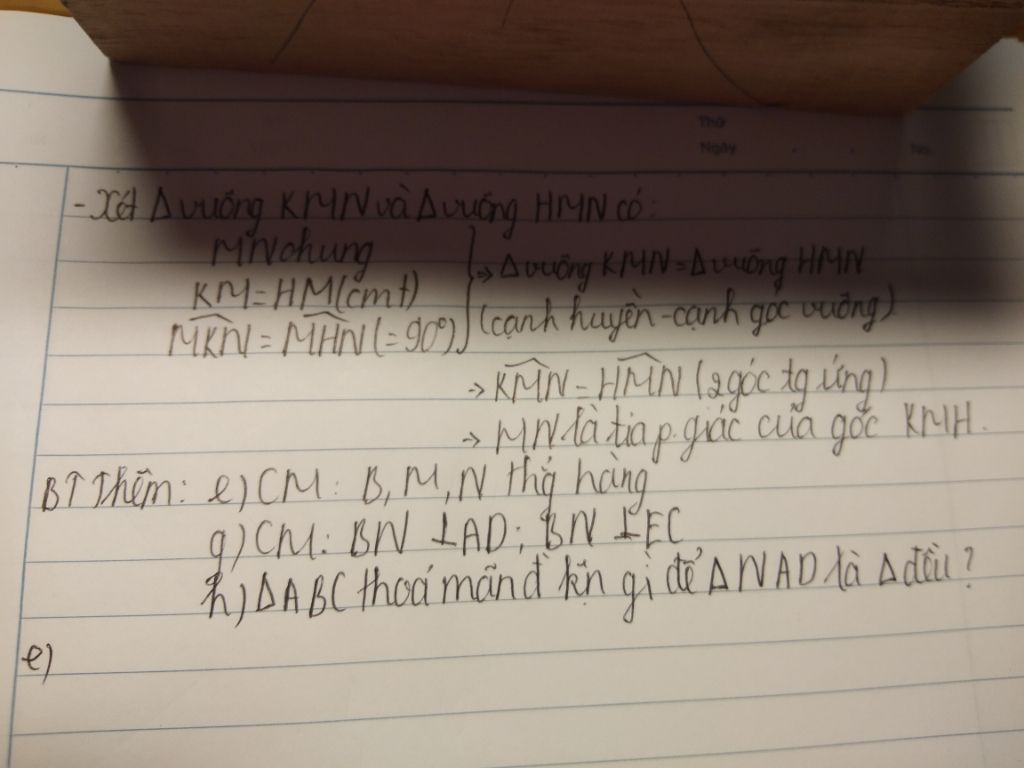 Thứ
Ngày No.
- Xét Δ vuông KMN và Δ vuông HMN có:
MN chung
KM = HM (cmt)
MKN = MHN (= 90°)
→ Δ vuông KMN = Δ vuông HMN
(cạnh huyền - cạnh góc vuông)
→ KMN = HMN (2 góc tg ứng)
→ MN là tia p. giác của góc KMH.
BT thêm: e) CM: B, M, N thg hàng
g) CM: BN ⊥ AD; BN ⊥ EC
h) ΔABC thoả mãn đ kịn gì để ΔNAD là Δ đều?
e)